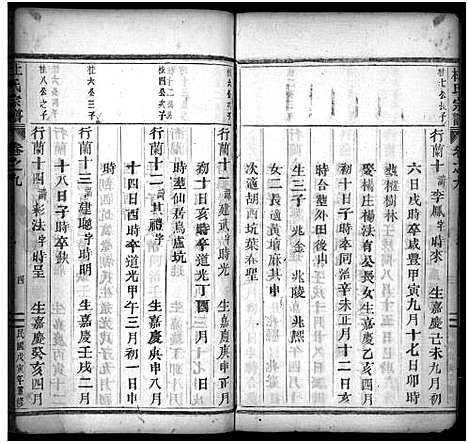 杜氏宗譜
卷之九
杜七公長子
行蘭十諱李鳳字時來
生嘉慶己未九月初
六日戌時卒咸豐甲寅九月十七日卯時
娶楊法有公長女生嘉慶乙亥四月
初十日子時卒同治辛未正月十二日亥
時合塋外田後申
生三子 兆金 兆陵 兆熙
次適胡西坑葉春聖
杜公之子
行蘭十一諱建武字時光
生嘉慶庚申正月
初一日亥時卒道光丁酉三月十七日
時塋仙居馬盧坑
杜四公子
行蘭十二諱其禮字時
生嘉慶庚申八月
十四日酉時卒道光甲午三月初一日申
時
杜六公三子
行蘭十三諱建聰字時明
生嘉慶壬戌二月
十八日子時卒缺
杜八公之子
行蘭十四諱彩法字時呈
生嘉慶癸亥四月
杜氏宗譜
卷之九
四
民國戊寅年重修